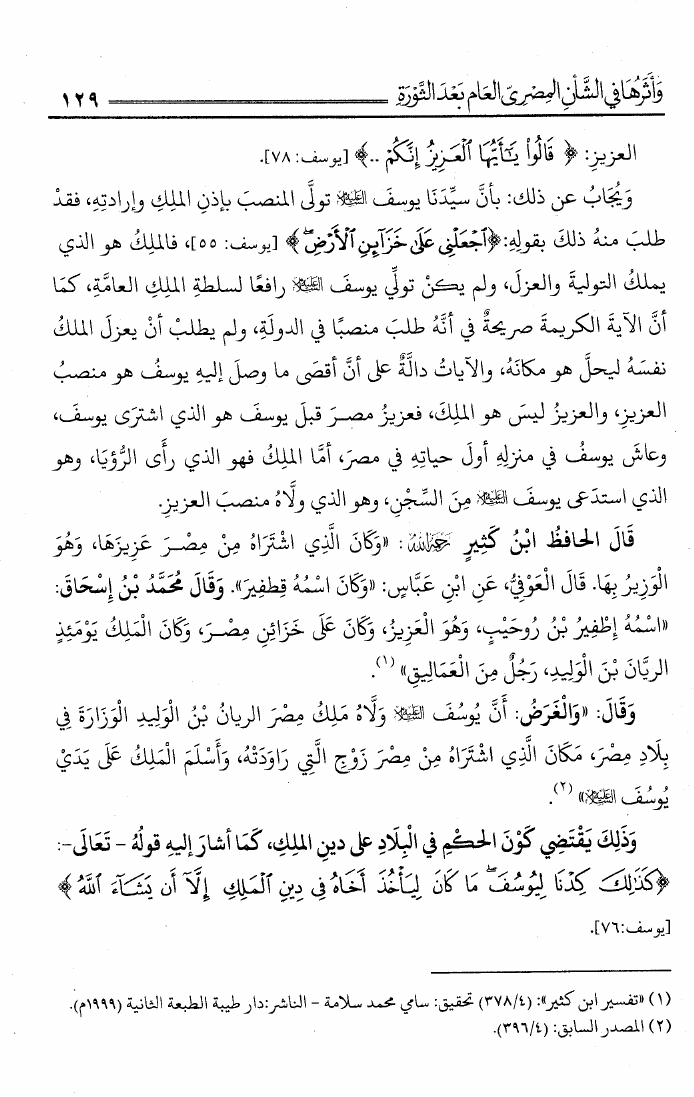 وَأَثَرُهَا فِي الشَّأْنِ المِصْرِيّ العَام بَعْدَ الثَّوْرَةِ ١٢٩
العزيزِ: ﴿ قَالُوا۟ يَـٰٓأَيُّهَا ٱلْعَزِيزُ إِنَّكُمْ ..﴾ [يوسف: ٧٨].
وَيُجَابُ عن ذلك: بأنَّ سيِّدَنَا يوسفَ عليه السلام تولَّى المنصبَ بإذنِ الملِكِ وإرادتِهِ، فقدْ
طلبَ منهُ ذلكَ بقولِهِ: ﴿ٱجْعَلْنِى عَلَىٰ خَزَآئِنِ ٱلْأَرْضِ ۖ﴾ [يوسف: ٥٥]، فالملِكُ هو الذي
يملكُ التوليةَ والعزلَ، ولم يكنْ تولِّي يوسفَ عليه السلام رافعًا لسلطةِ الملِكِ العامَّةِ، كمَا
أنَّ الآيةَ الكريمةَ صريحةٌ في أنَّهُ طلبَ منصبًا في الدولَةِ، ولم يطلبْ أنْ يعزلَ الملكُ
نفسَهُ ليحلَّ هو مكانَهُ، والآياتُ دالَّةٌ على أنَّ أقصَى ما وصلَ إليهِ يوسفُ هو منصبُ
العزيزِ، والعزيزُ ليسَ هو الملِكَ، فعزيزُ مصرَ قبلَ يوسفَ هو الذي اشترَى يوسفَ،
وعاشَ يوسفُ في منزلِهِ أولَ حياتِهِ في مصرَ، أمَّا الملِكُ فهو الذي رأَى الرُّؤيَا، وهو
الذي استدعَى يوسفَ عليه السلام مِنَ السِّجْنِ، وهو الذي ولَّاهُ منصبَ العزيزِ.
قَالَ الحافظُ ابْنُ كَثِيرٍ رحمه الله: «وَكَانَ الَّذِي اشْتَرَاهُ مِنْ مِصْرَ عَزِيزَهَا، وَهُوَ
الْوَزِيرُ بِهَا. قَالَ الْعَوْفِيُّ، عَنِ ابْنِ عَبَّاسٍ: «وَكَانَ اسْمُهُ قِطفِيرَ». وَقَالَ مُحَمَّدُ بْنُ إِسْحَاقَ:
«اسْمُهُ إِطْفِيرُ بْنُ رُوحَيْبٍ، وَهُوَ الْعَزِيزُ، وَكَانَ عَلَى خَزَائِنِ مِصْرَ، وَكَانَ الْمَلِكُ يَوْمَئِذٍ
الريَّانَ بْنَ الْوَلِيدِ، رَجُلٌ مِنَ الْعَمَالِيقِ» (١).
وَقَالَ: «وَالْغَرَضُ: أَنَّ يُوسُفَ عليه السلام وَلَّاهُ مَلِكُ مِصْرَ الريانُ بْنُ الْوَلِيدِ الْوَزَارَةَ فِي
بِلَادِ مِصْرَ، مَكَانَ الَّذِي اشْتَرَاهُ مِنْ مِصْرَ زَوْجِ الَّتِي رَاوَدَتْهُ، وَأَسْلَمَ الْمَلِكُ عَلَى يَدَيْ
يُوسُفَ عليه السلام» (٢).
وَذَلِكَ يَقْتَضِي كَوْنَ الحكْمِ فِي الْبِلَادِ على دينِ الملِكِ، كمَا أشارَ إليهِ قولُهُ - تَعَالَى-:
﴿كَذَٰلِكَ كِدْنَا لِيُوسُفَ ۖ مَا كَانَ لِيَأْخُذَ أَخَاهُ فِى دِينِ ٱلْمَلِكِ إِلَّآ أَن يَشَآءَ ٱللَّهُ ﴾
[يوسف:٧٦].
(١) «تفسير ابن كثير»: (٣٧٨/٤) تحقيق: سامي محمد سلامة - الناشر:دار طيبة الطبعة الثانية (١٩٩٩م).
(٢) المصدر السابق: (٣٩٦/٤).